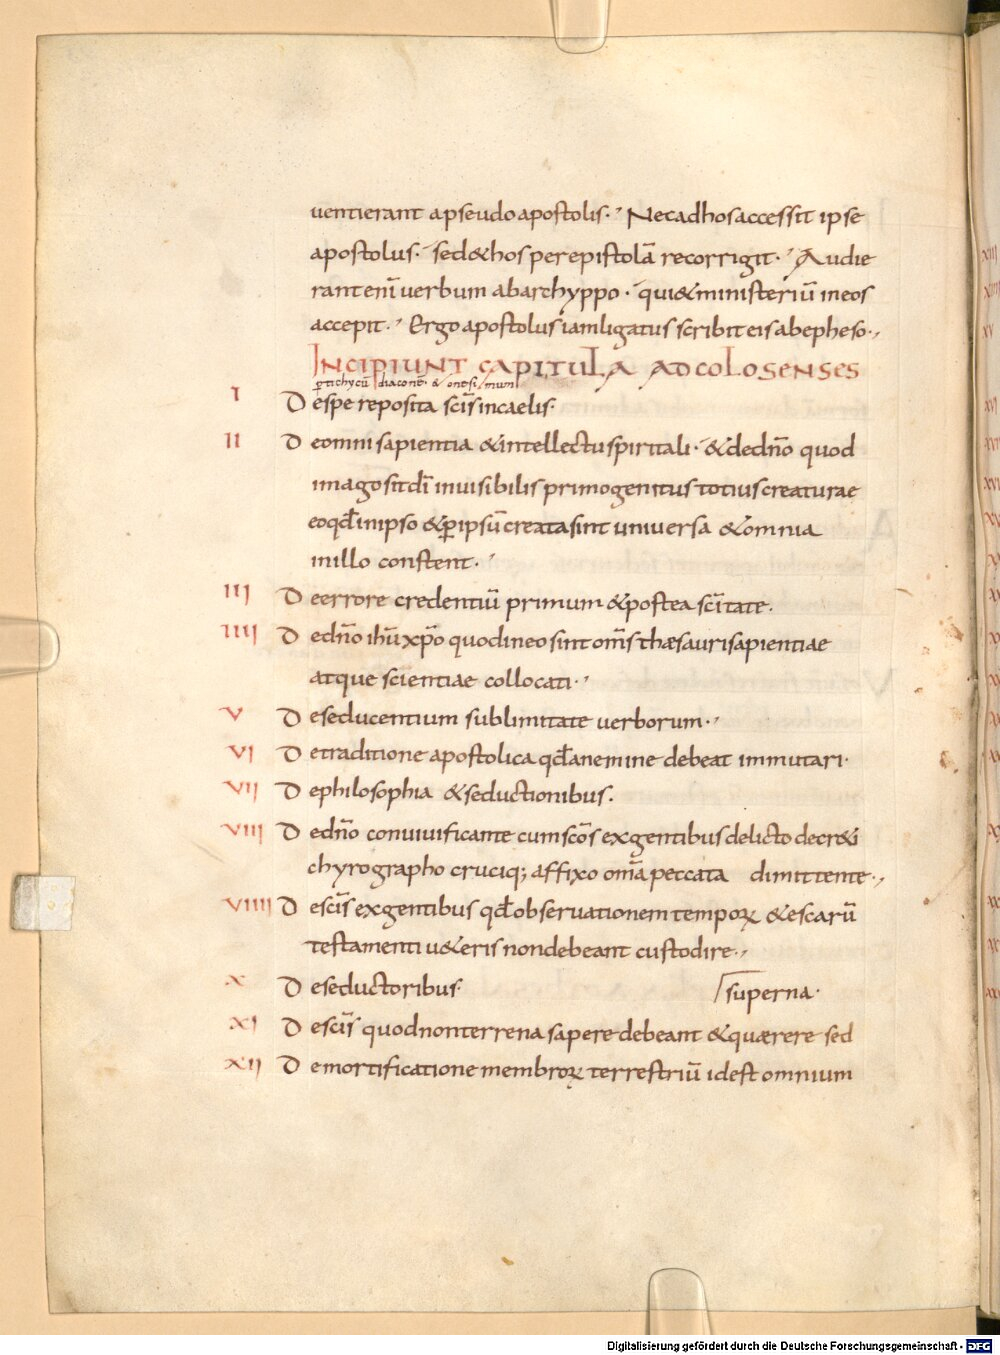 uentierant apseudoapostolis. Necadhosaccessit ipse
apostolus. sed&hos perepistolā recorrigit. Audie
rantenī uerbum abarchyppo. qui&ministeriū ineos
accepit. Ergoapostolusiamligatus scribit eis abepheso.
INCIPIUNT CAPITULA ADCOLOSENSES
ptichycū diaconē & onesimum
I De spe reposita scīs incaelis.
II De omni sapientia &intellectu spiritali. &dednō quod
imago sit dī inuisibilis primogenitus totius creaturae
eo qđ inipso &p ipsū creata sint uniuersa &omnia
inillo constent.
III De errore credentiū primum &postea scītate.
IIII De dnō ihū xpō quod ineo sint omīs thæsauri sapientiae
atque scientiae collocati.
V De seducentium sublimitate uerborum.
VI De traditione apostolica qđ anemine debeat immutari.
VII De philosophia &seductionibus.
VIII De dnō conuiuificante cum scōs exgentibus delicto decr&i
chyrographo cruciq; affixo omīa peccata dimittente.
VIIII De scīs exgentibus qđ obseruationem temporꝝ &escarū
testamenti u&eris nondebeant custodire.
X De seductoribus.
superna.
XI De scīs quod nonterrena sapere debeant &quærere sed
XII De mortificatione membroꝝ terrestriū idest omnium
Digitalisierung gefördert durch die Deutsche Forschungsgemeinschaft - DFG